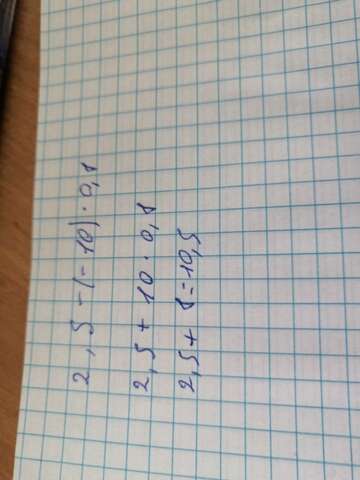 2,5 - (- 10) · 0,8
2,5 + 10 · 0,8
2,5 + 8 = 10,5